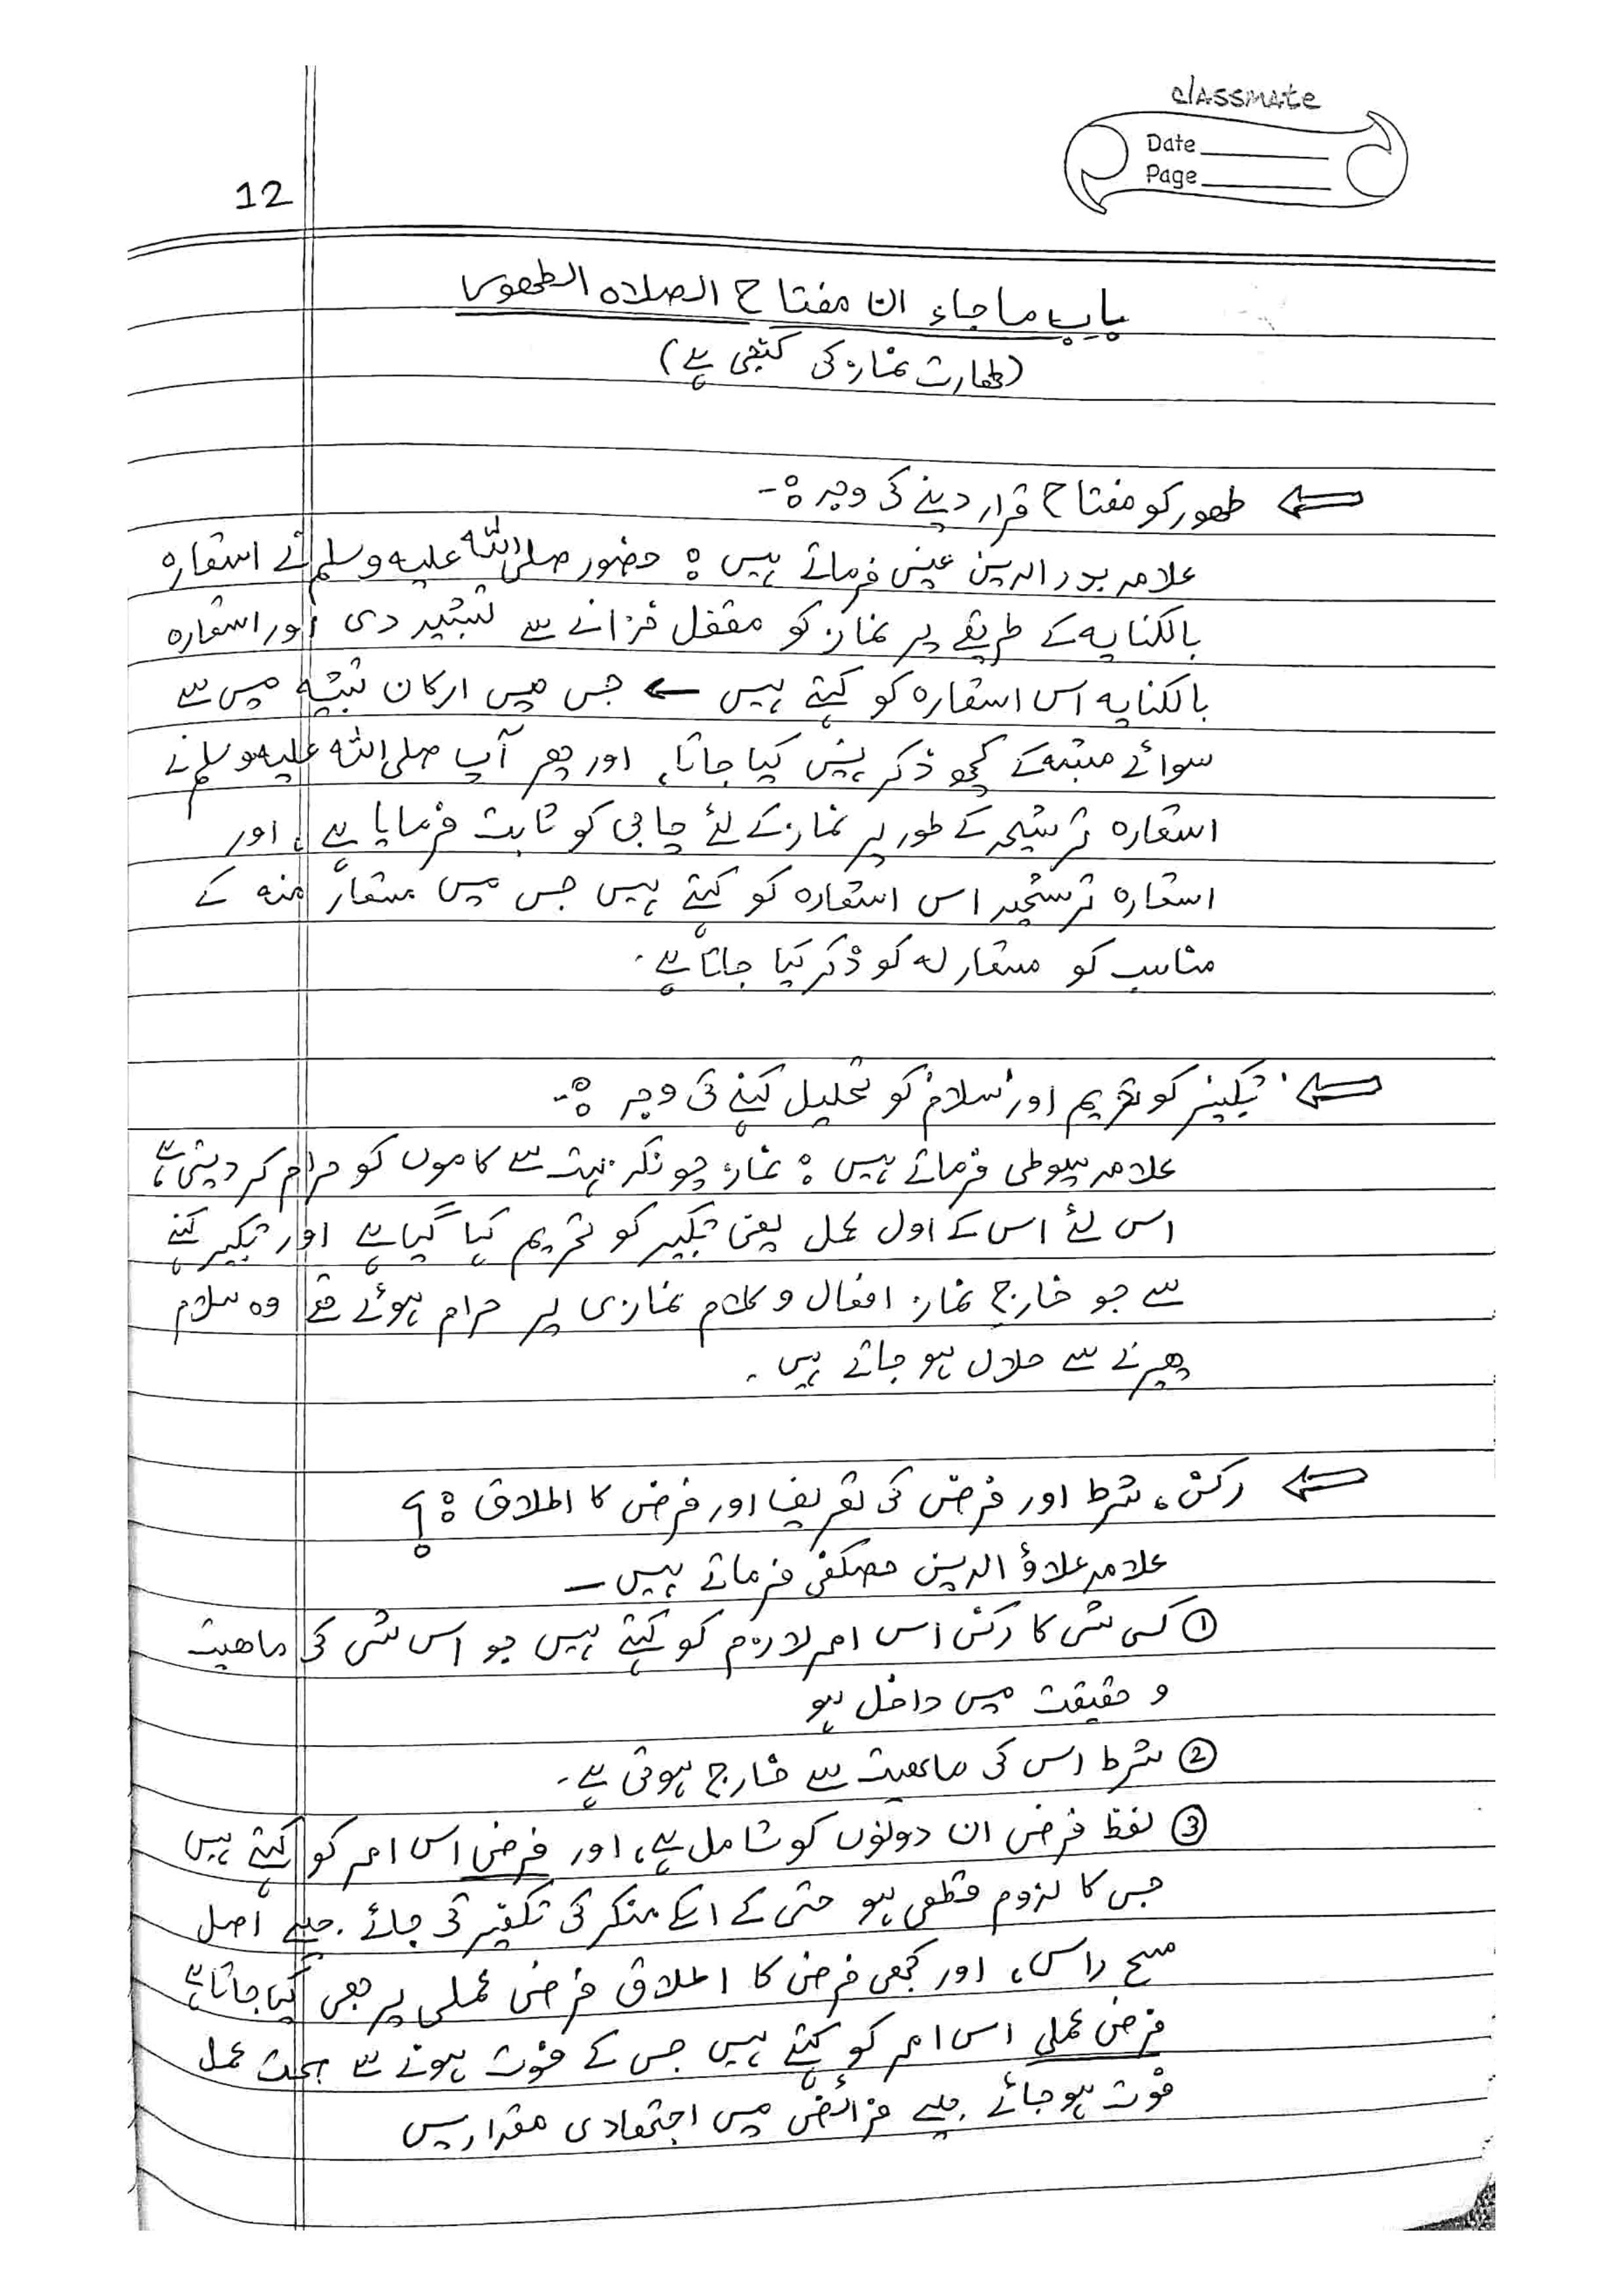 classmate
Date
Page
12
باب ما جاء ان مفتاح الصلاہ الطھور
(طھارت نماز کی کنجی ہے)
طھور کو مفتاح قرار دینے کی وجہ :-
علامہ بدر الدین عینی فرماتے ہیں : حضور صلی اللہ علیہ وسلم نے استعارہ
بالکنایہ کے طریقے پر نماز کو مقفل خزانے سے تشبیہ دی اور استعارہ
بالکنایہ اس استعارہ کو کہتے ہیں ← جس میں ارکان تشبیہ میں سے
سوائے مشبہ کے کچھ ذکر نہیں کیا جاتا، اور پھر آپ صلی اللہ علیہ وسلم نے
استعارہ ترشیحہ کے طور پر نماز کے لئے چابی کو ثابت فرمایا ہے، اور
استعارہ ترشیحیہ اس استعارہ کو کہتے ہیں جس میں مستعار منہ کے
مناسب کو مستعار لہ کو ذکر کیا جاتا ہے۔
تکبیر کو تحریم اور سلام کو تحلیل کہنے کی وجہ :-
علامہ سیوطی فرماتے ہیں : نماز چونکہ بہت سے کاموں کو حرام کر دیتی ہے،
اس لئے اس کے اول عمل یعنی تکبیر کو تحریم کہا گیا ہے اور تکبیر کہنے
سے جو خارج نماز افعال و کلام نمازی پر حرام ہوئے تھے وہ سلام
پھیرنے سے حلال ہو جاتے ہیں۔
رکن، شرط اور فرض کی تعریف اور فرض کا اطلاق : ؟
علامہ علاؤ الدین حصکفی فرماتے ہیں —
① کسی شی کا رکن اس امر لازم کو کہتے ہیں جو اس شی کی ماھیت
و حقیقت میں داخل ہو
② شرط اس کی ماھیت سے خارج ہوتی ہے۔
③ لفظ فرض ان دونوں کو شامل ہے، اور فرض اس امر کو کہتے ہیں
جس کا لزوم قطعی ہو حتی کے اسکے منکر کی تکفیر کی جائے۔ جیسے اصل
مسح راس، اور کبھی فرض کا اطلاق فرض عملی پر بھی کیا جاتا ہے
فرض عملی اس امر کو کہتے ہیں جس کے فوت ہونے سے صحت عمل
فوت ہو جائے۔ جیسے فرائض میں اجتھادی مقداریں